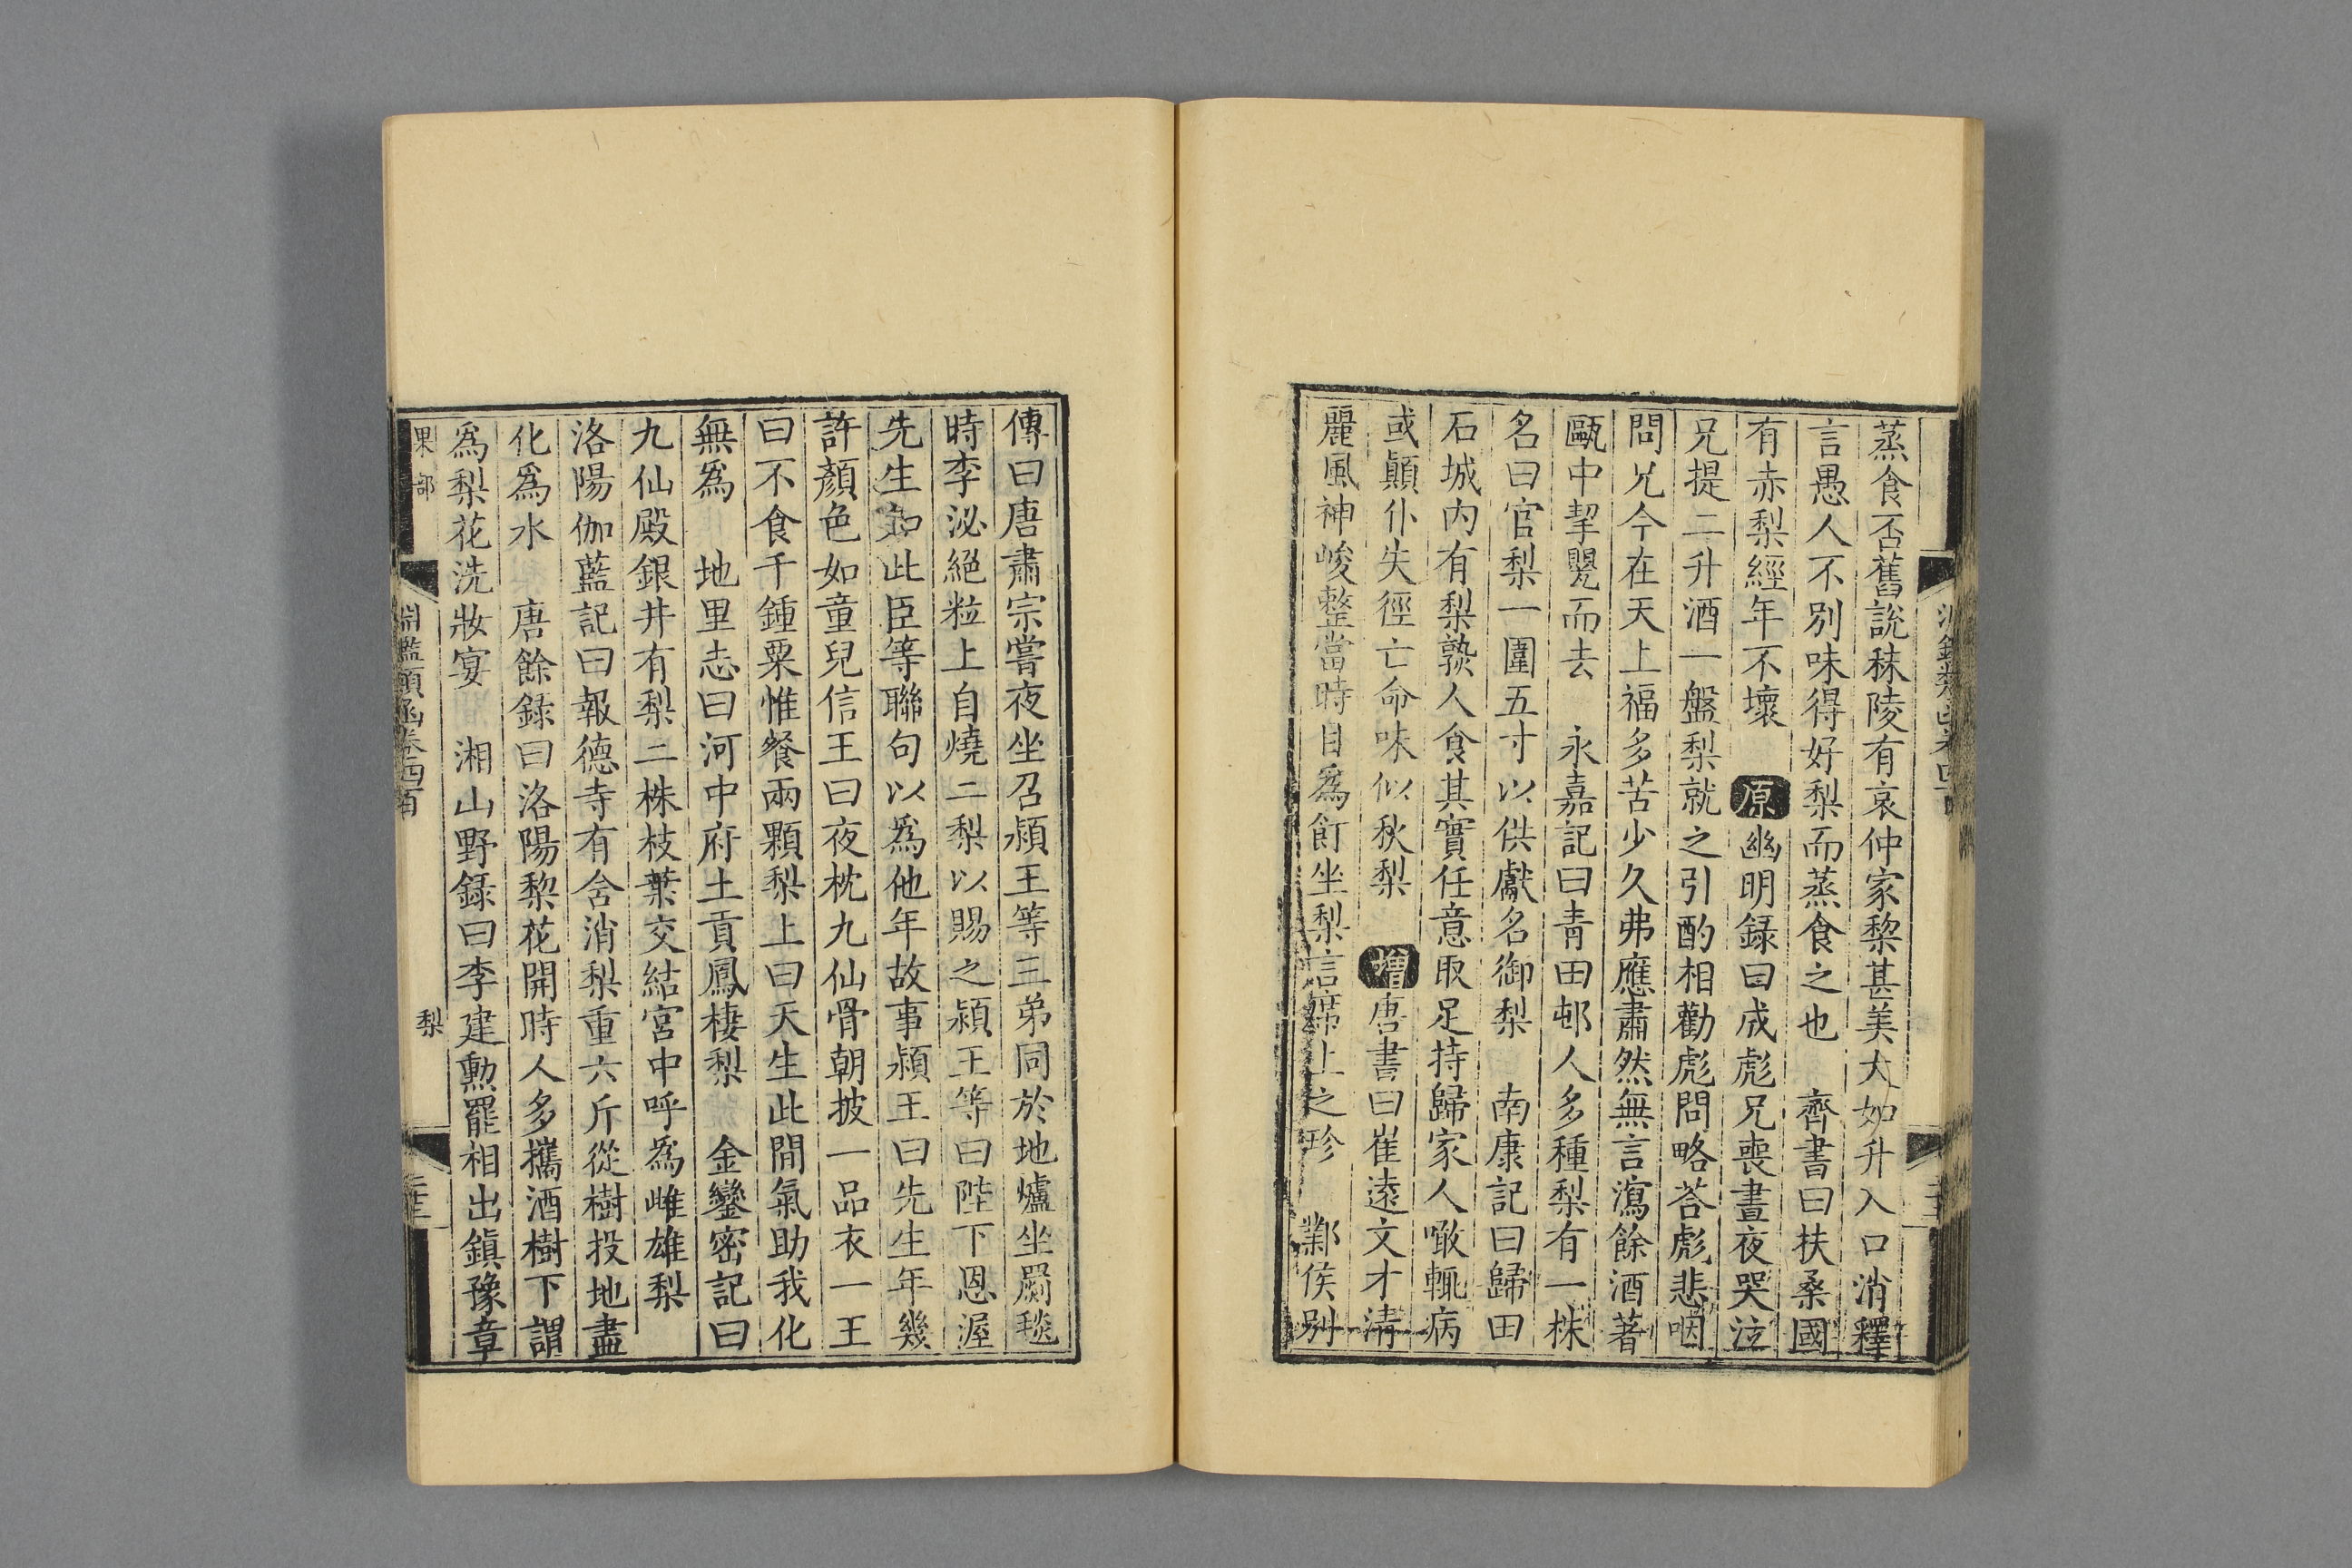 蒸食否舊說秣陵有哀仲家棃甚美大如升入口消釋
言愚人不別味得好梨而蒸食之也 齊書曰扶桑國
有赤梨經年不壞 原幽明錄曰成彪兄喪晝夜哭泣
兄提二升酒一盤梨就之引酌相勸彪問略荅彪悲咽
問兄今在天上福多苦少久弗應肅然無言瀉餘酒著
甌中挈甖而去 永嘉記曰青田邨人多種梨有一株
名曰官梨一圍五寸以供獻名御梨 南康記曰歸田
石城内有梨熟人食其實任意取足持歸家人噉輒病
或顚仆失徑亡命味似秋梨 增唐書曰崔遠文才清
麗風神峻整當時目爲飣坐梨言席上之珍 鄴侯別
傳曰唐肅宗嘗夜坐召潁王等三弟同於地爐坐罽毯
時李泌絕粒上自燒二梨以賜之潁王等曰陛下恩渥
先生如此臣等聯句以爲他年故事潁王曰先生年幾
許顏色如童兒信王曰夜枕九仙骨朝披一品衣一王
曰不食千鍾粟惟餐兩顆梨上曰天生此閒氣助我化
無爲 地里志曰河中府土貢鳳棲梨 金鑾密記曰
九仙殿銀井有梨二株枝葉交結宮中呼爲雌雄梨
洛陽伽藍記曰報德寺有含消梨重六斤從樹投地盡
化爲水 唐餘錄曰洛陽棃花開時人多攜酒樹下謂
爲梨花洗妝宴 湘山野錄曰李建勳罷相出鎭豫章
果部 淵鑑類函卷四百 梨